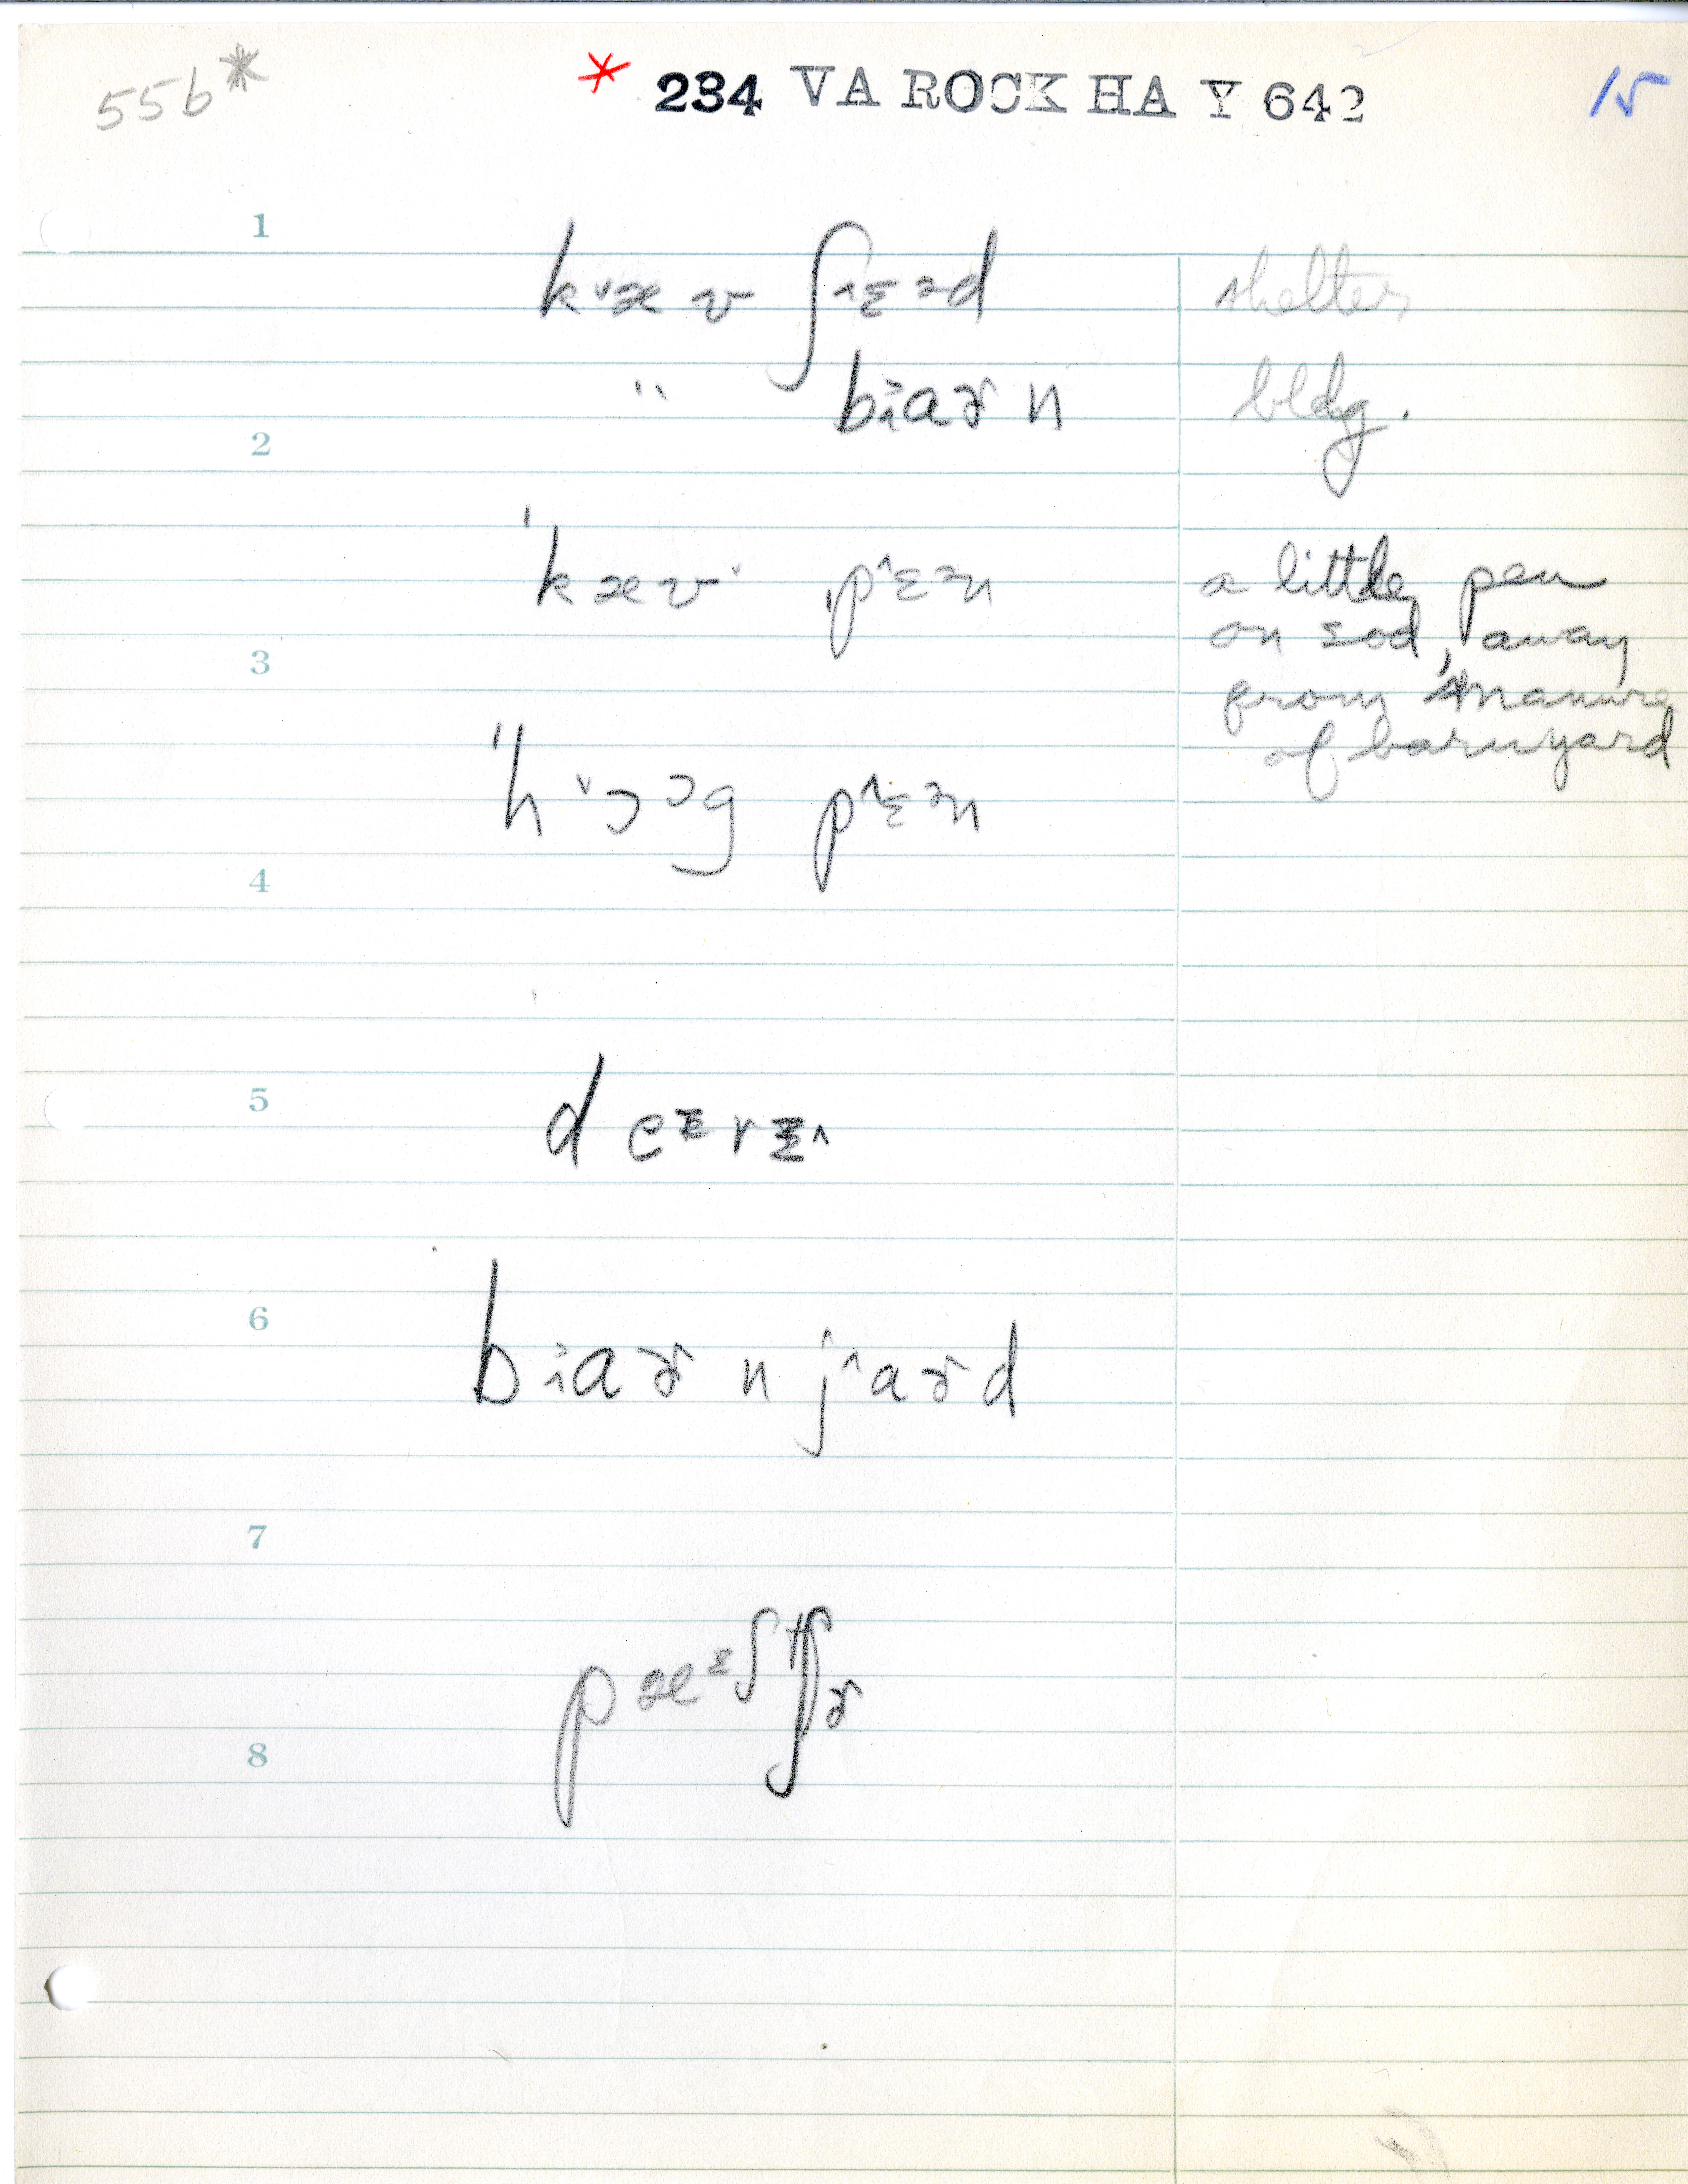 55b* * 234 VA ROCK HA Y 642 15
1
kˇæ v ʃ^ɛᵊd shelter
" bi̯aɚ n bldg.
2
ˈkævˇ ˌp^ɛᵊn a little pen
on sod, away
3
from manure
of barnyard
ˈˈhˇɔᵓg p^ɛᵊn
4
5
deᶦrɪ^
6
bi̯aɚ n j^aɚd
7
pæᶦʃtʃɚ
8